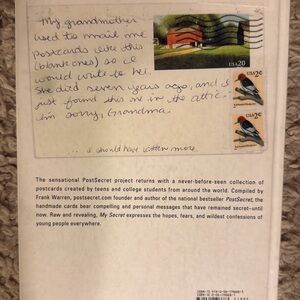 My grandmother
used to mail me
postcards like this
(blank ones) so I
would write to her.
She died seven years ago, and I
just found this one in the attic.
I'm sorry, Grandma.
... I should have written more.
USA 20
USA 2¢
USA 2¢
The sensational PostSecret project returns with a never-before-seen collection of
postcards created by teens and college students from around the world. Compiled by
Frank Warren, postsecret.com founder and author of the national bestseller PostSecret, the
handmade cards bear compelling and personal messages that have remained secret—until
now. Raw and revealing, My Secret expresses the hopes, fears, and wildest confessions of
young people everywhere.